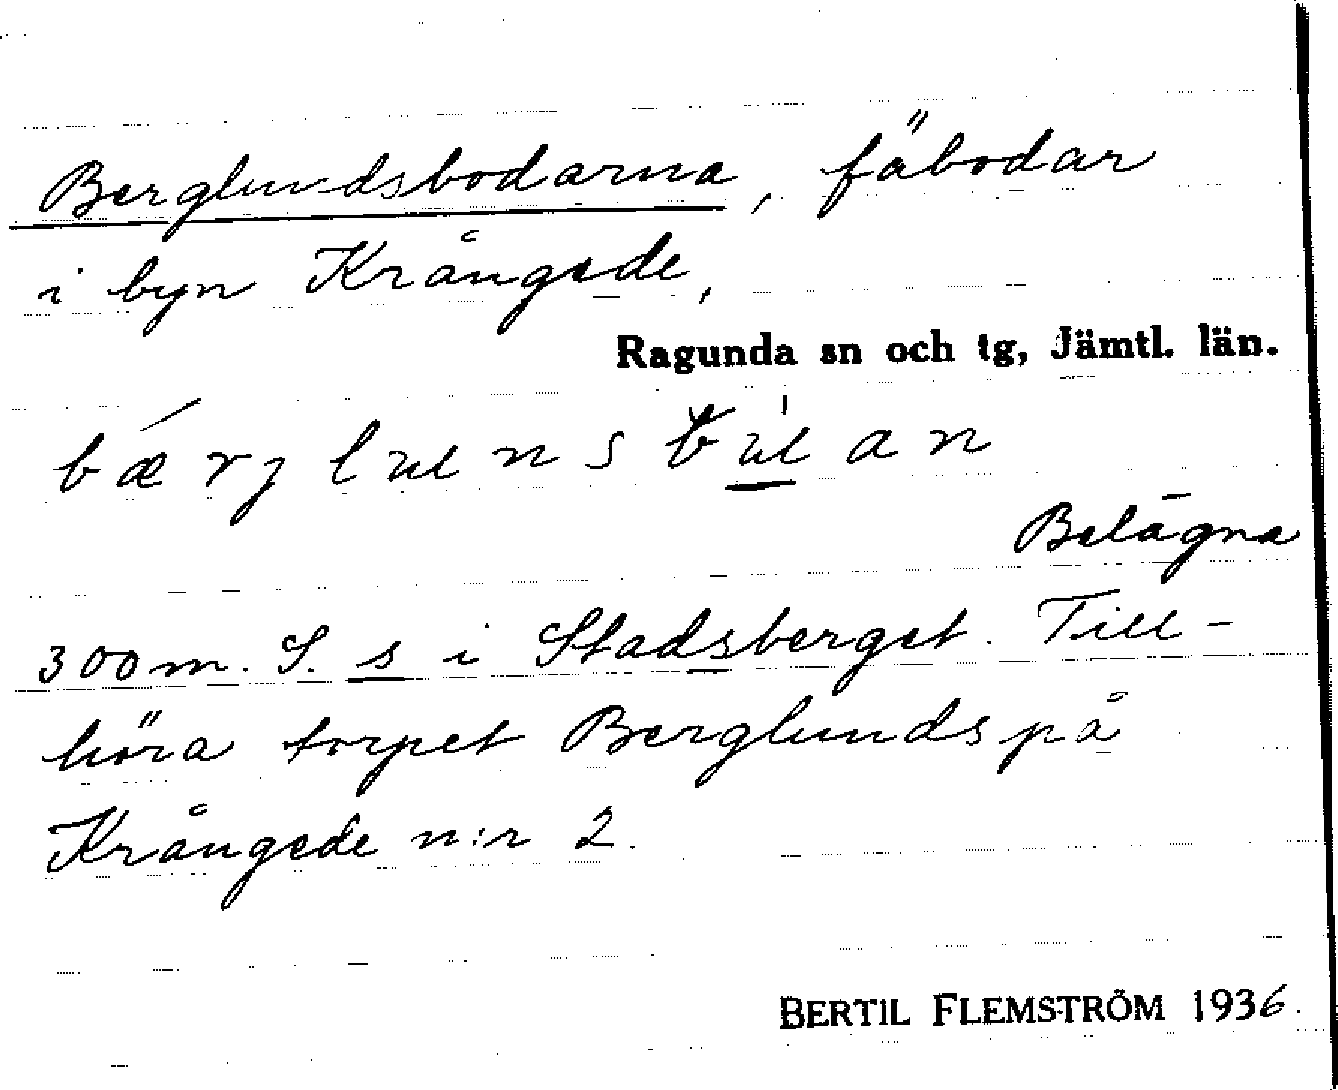 Berglundsbodarna, fäbodar
i byn Krångede,
Ragunda sn och tg, Jämtl. län.
Belägna
300 m. S. s i Stadsberget. Till-
höra torpet Berglunds på
Krångede n:r 2.
BERTIL FLEMSTRÖM 1936.